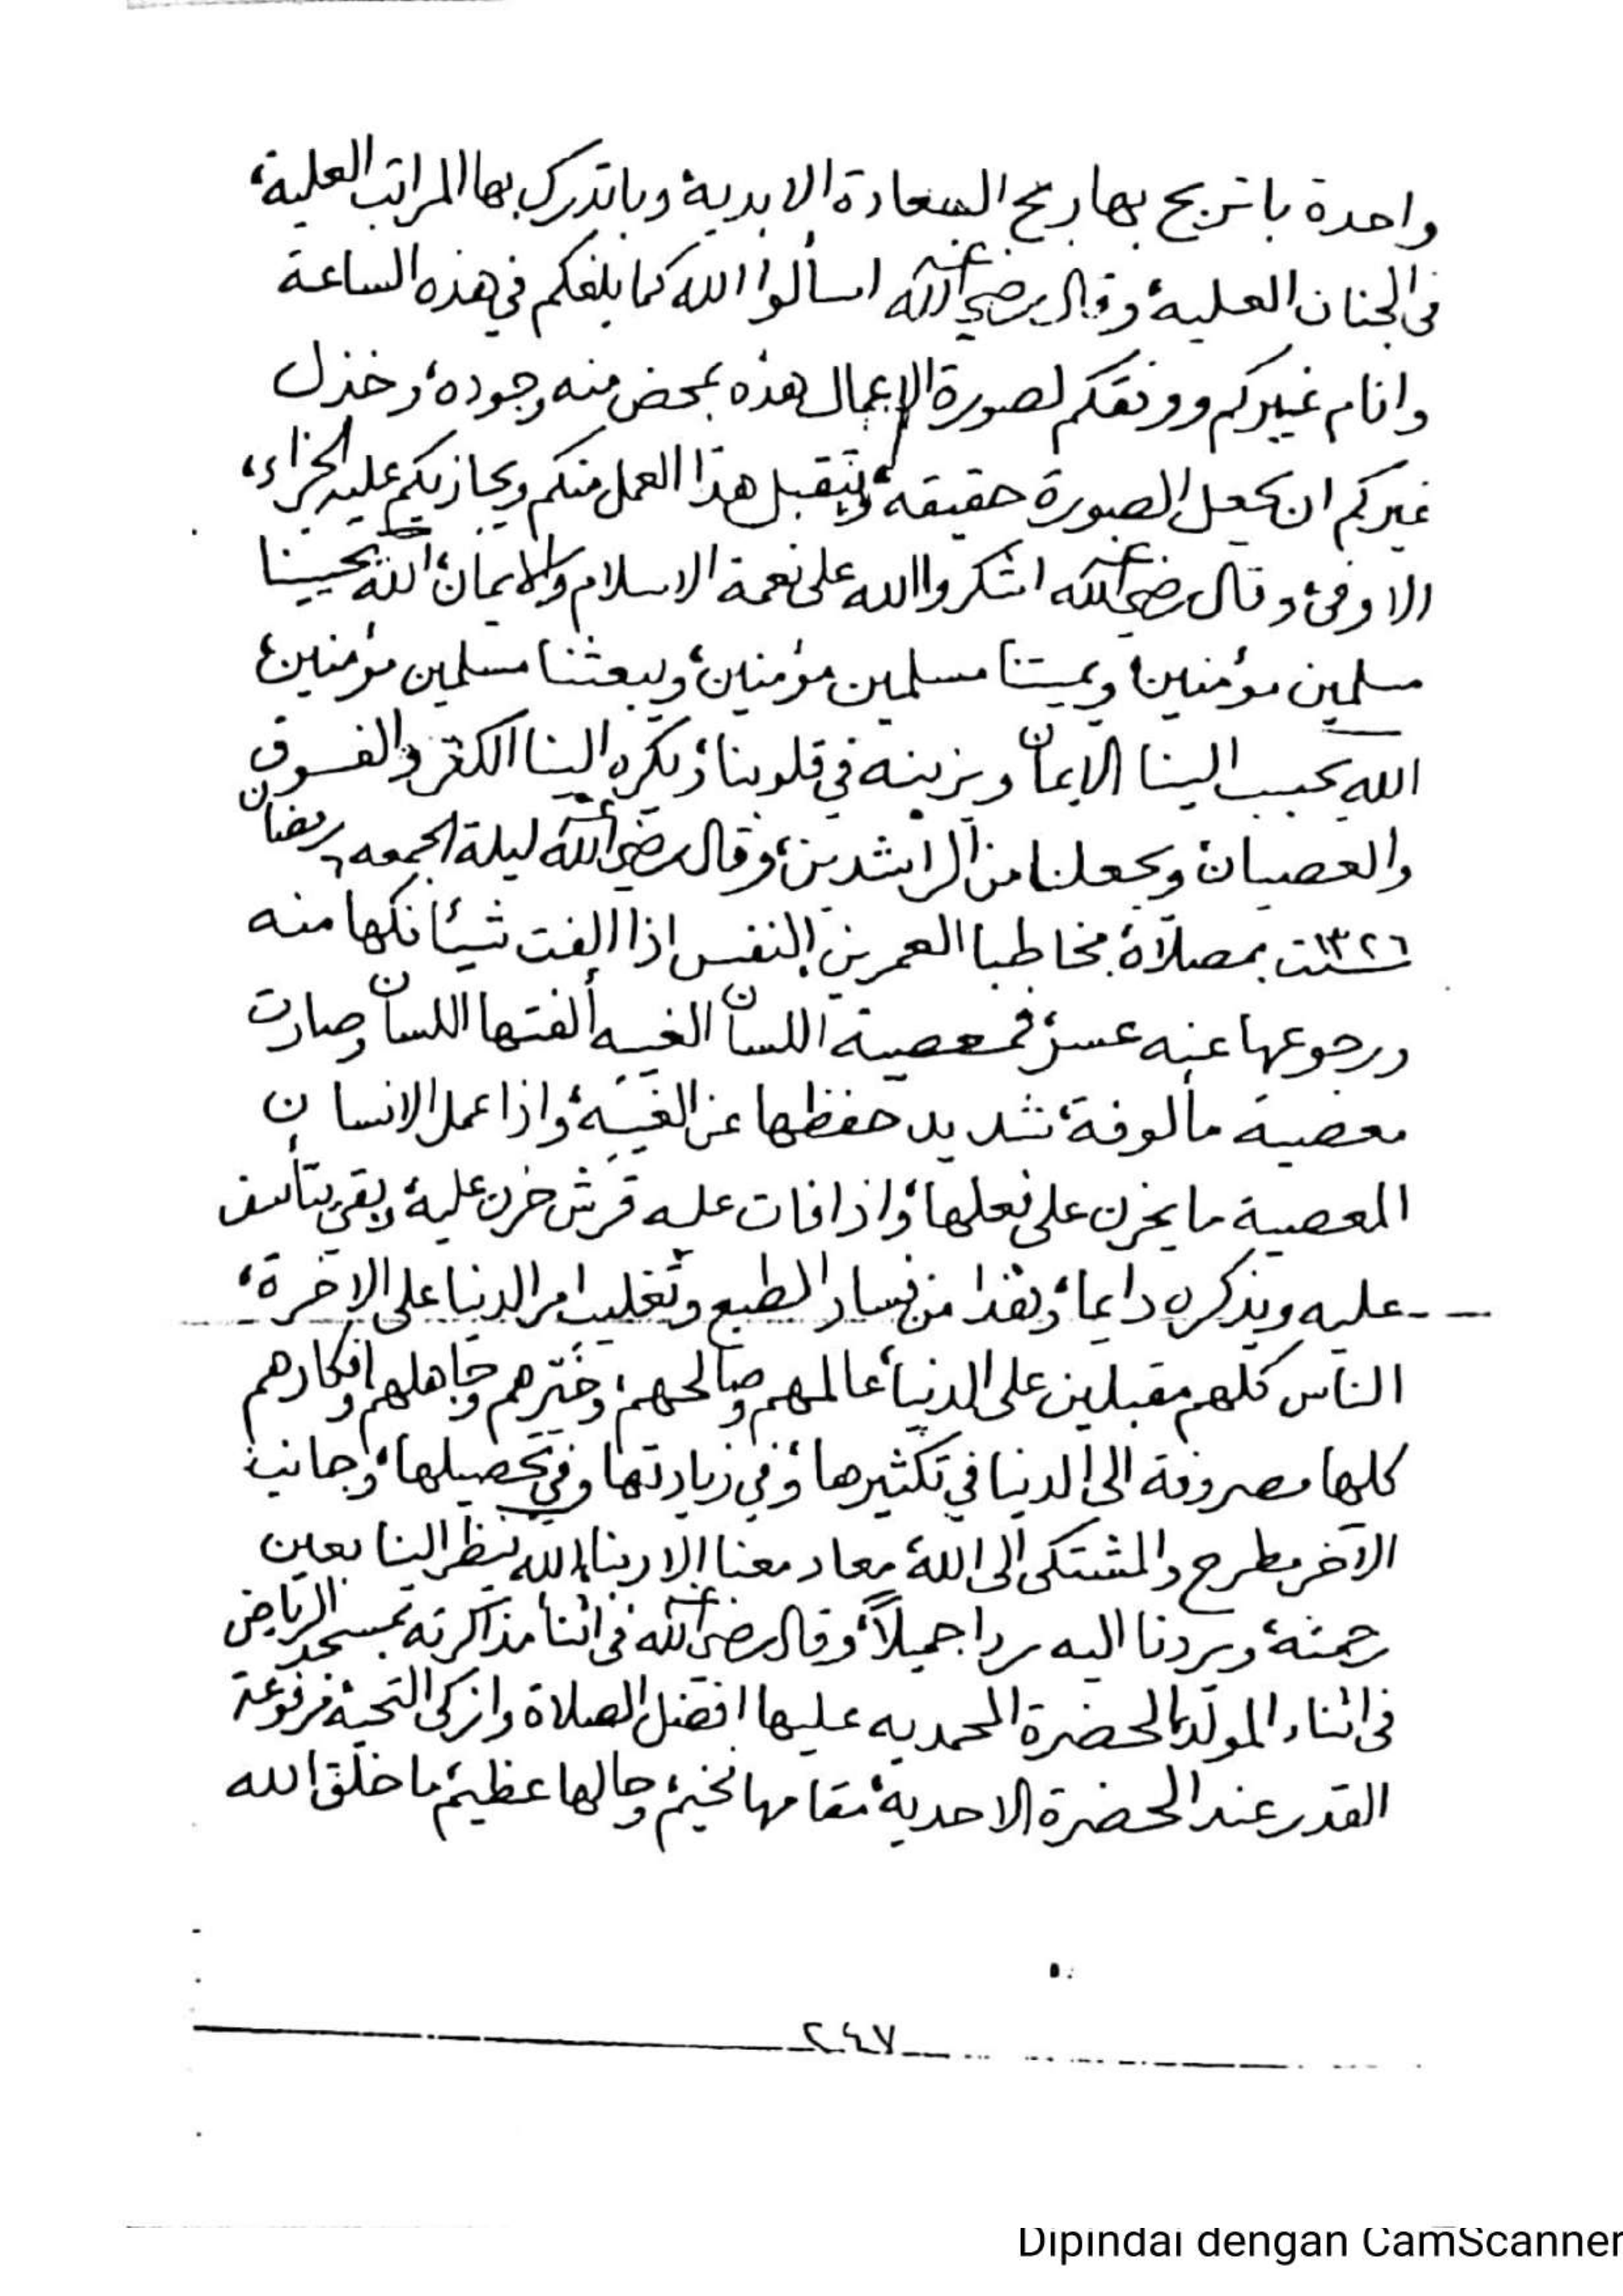 واحدة باتربح بها ربح السعادة الابدية، وباتدرك بها المراتب العلية،
في الجنان العلية، وقال رضي الله عنه اسألوا الله كما بلغكم في هذه الساعة
وانام غيركم ووفقكم لصورة الاعمال هذه بمحض منه وجوده، وخذل
غيركم ان يجعل الصورة حقيقه، ويتقبل هذا العمل منكم ويجازيكم عليه الجزاء،
الاوفى، وقال رضي الله عنه اشكروا الله على نعمة الاسلام والايمان، الله يحيينا
مسلمين مؤمنين، ويميتنا مسلمين مؤمنين، ويبعثنا مسلمين مؤمنين،
الله يحبب الينا الايمان ويزينه في قلوبنا، ويكره الينا الكفر والفسوق
والعصيان، ويجعلنا من الراشدين، وقال رضي الله عنه ليلة الجمعه رمضان
١٣٢٦ سنت بمصلاه، مخاطبا العمرين، النفس اذا الفت شيئا نكها منه
ورجوعها عنه عسر، فمعصية اللسان الغيبه ألفتها اللسان وصارت
معصية مألوفة، شديد حفظها عن الغيبة، واذا عمل الانسان
المعصية ما يحزن على فعلها، واذا فات عليه قرش حزن عليه، وبقي يتأسف
عليه ويذكره دايما، وهذا من فساد الطبع وتغليب امر الدنيا على الاخرة،
الناس كلهم مقبلين على الدنيا، عالمهم وصالحهم، وخيرهم وجاهلهم وافكارهم
كلها مصروفة الى الدنيا في تكثيرها، وفي زيادتها وفي تحصيلها، وجانب
الآخر مطرح والمشتكى الى الله، معاد معنا إلا ربنا، الله ينظر الينا بعين
رحمته، ويردنا اليه ردا جميلاً، وقال رضي الله عنه في اثنا مذاكرته بمسجد الرياض
في اثناء المولد، الحضرة المحمديه عليها افضل الصلاة وازكى التحية مرفوعة
القدر عند الحضرة الاحدية، مقامها فخيم، وحالها عظيم، ما خلق الله
٢٤٧
Dipindai dengan CamScanner